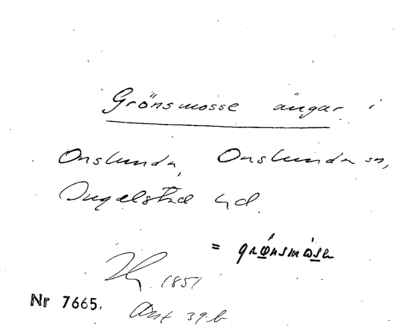 Grönsmosse ängar i
Onslunda, Onslunda sn,
Ingelstad hd.
= grönsmåsa
1851
Nr 7665.
Ant 39 b